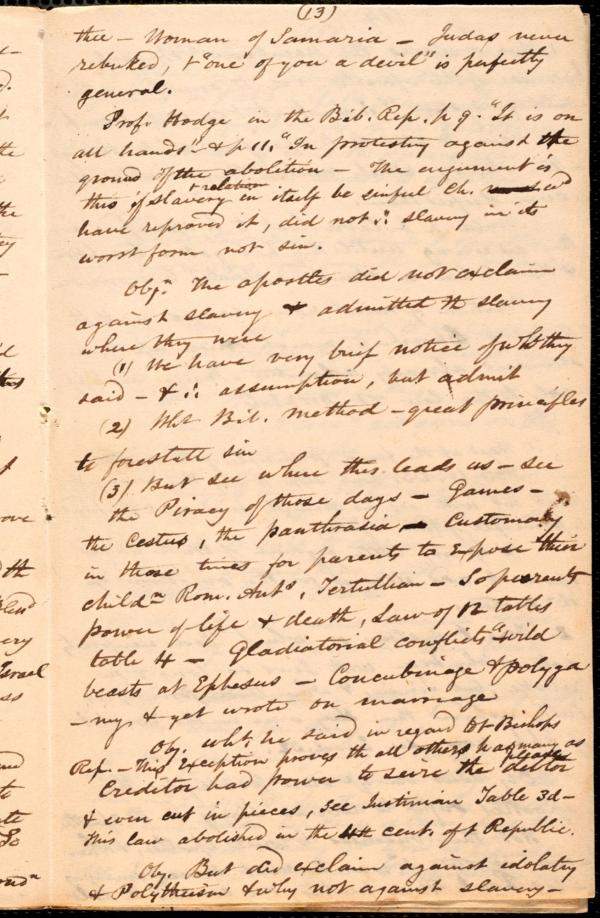 (13)
thee – Woman of Samaria – Judas never
rebuked, & "one of you a devil" is perfectly
general.
Prof. Hodge in the Bib. Rep. p 9. "It is on
all hands" – & p 11. "In protesting against the
ground of the abolition – The argument is
this if slavery + relation in itself be sinful Ch.
have reproved it, did not ∴ slavery in its
worst form not sin.
Objn. The apostles did not exclaim
against slavery & admitted th slavery
where they were
(1) We have very brief notice of wht they
said – & ∴ assumption, but admit
(2) Wht Bib. method – great principles
to forestall sin
(3) But see where this leads us – see
the Piracy of those days – Games –
the Cestus, the panthrasia – Customary
in those times for parents to Expose their
childn Rom. Ants, Tertullian – So parents
power of life & death, Law of 12 tables
table 4 – Gladiatorial conflicts "wild
beasts at Ephesus – Concubinage & polyga
– my & yet wrote on marriage
Ob. wht he said in regard to Bishops
Rep. – This Exception proves th all others had many as please
Creditor had power to seize the debtor
& even cut in pieces, see Justinian Table 3d –
this law abolished in the 4th cent. of t Republic.
Ob. But did exclaim against idolatry
& Polytheism & why not against slavery –